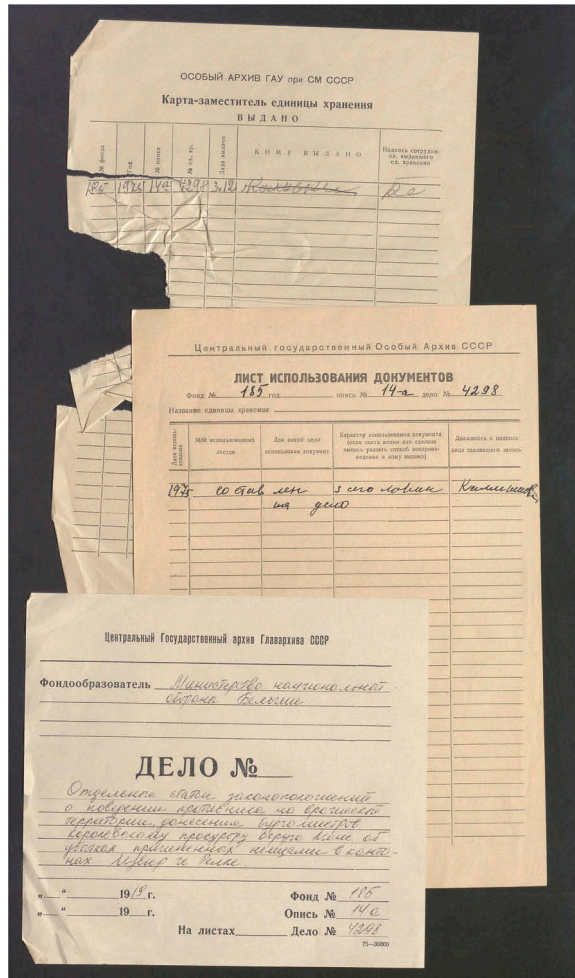 ОСОБЫЙ АРХИВ ГАУ при СМ СССР
Карта-заместитель единицы хранения
ВЫДАНО
№ фонда Год № описи № ед. хр. Дата выдачи КОМУ ВЫДАНО Подпись сотрудника, выдавшего ед. хранения
185 1975 14а 4298 3.12
Центральный государственный Особый Архив СССР
ЛИСТ ИСПОЛЬЗОВАНИЯ ДОКУМЕНТОВ
Фонд № 185 год опись № 14-а дело № 4298
Название единицы хранения
Дата использования
№№ использованных листов
Для какой цели использован документ
Характер использования документа (если снята копия или сделана выписка указать способ воспроизведения и кому выдано)
Должность и подпись лица сделавшего запись
1975 составлен
дело
Центральный Государственный архив Главархива СССР
Фондообразователь Министерство национальной
обороны Бельгии
ДЕЛО №
Отдельные статьи законоположений
о поведении противника на вражеской
территории, донесения бургомистров
королевскому прокурору округа Монс об
убытках причиненных немцами в канто-
нах
„ “ 1919 г. Фонд № 185
„ “ 19 г. Опись № 14а
На листах Дело № 4298
75—36000